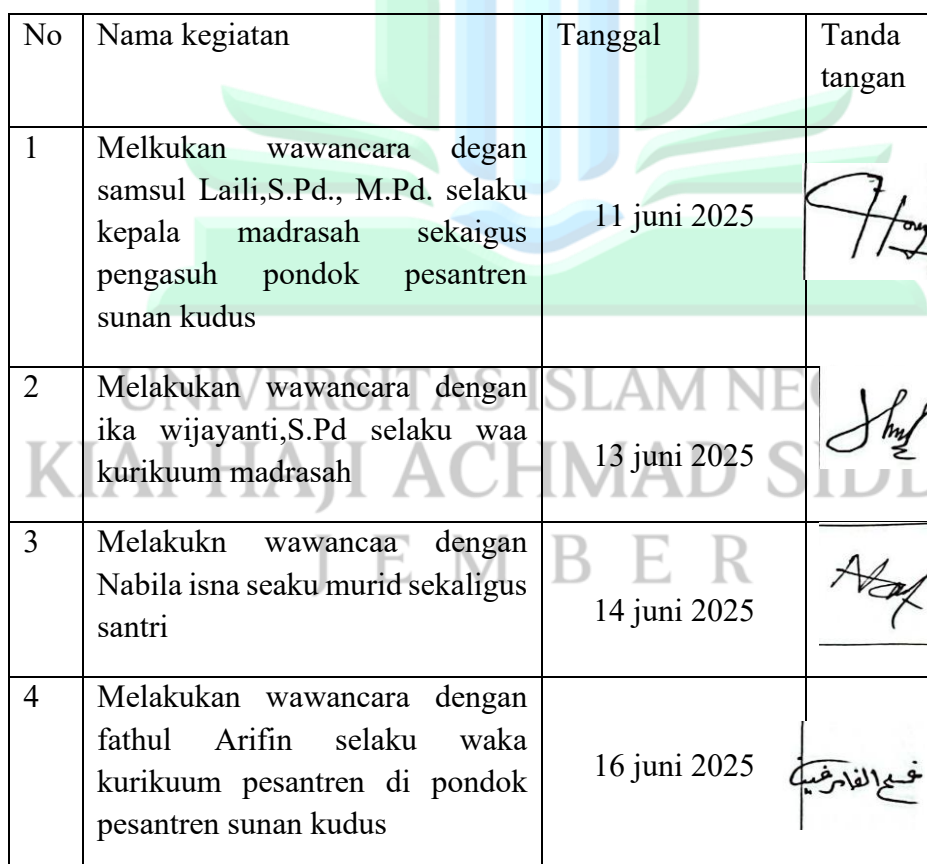 No Nama kegiatan Tanggal Tanda
tangan
1 Melkukan wawancara degan
samsul Laili,S.Pd., M.Pd. selaku
kepala madrasah sekaigus
pengasuh pondok pesantren
sunan kudus
11 juni 2025
2 Melakukan wawancara dengan
ika wijayanti,S.Pd selaku waa
kurikuum madrasah
13 juni 2025
3 Melakukn wawancaa dengan
Nabila isna seaku murid sekaligus
santri
14 juni 2025
4 Melakukan wawancara dengan
fathul Arifin selaku waka
kurikuum pesantren di pondok
pesantren sunan kudus
16 juni 2025
UNIVERSITAS ISLAM NE
KIAI HAJI ACHMAD SIDD
JEMBER